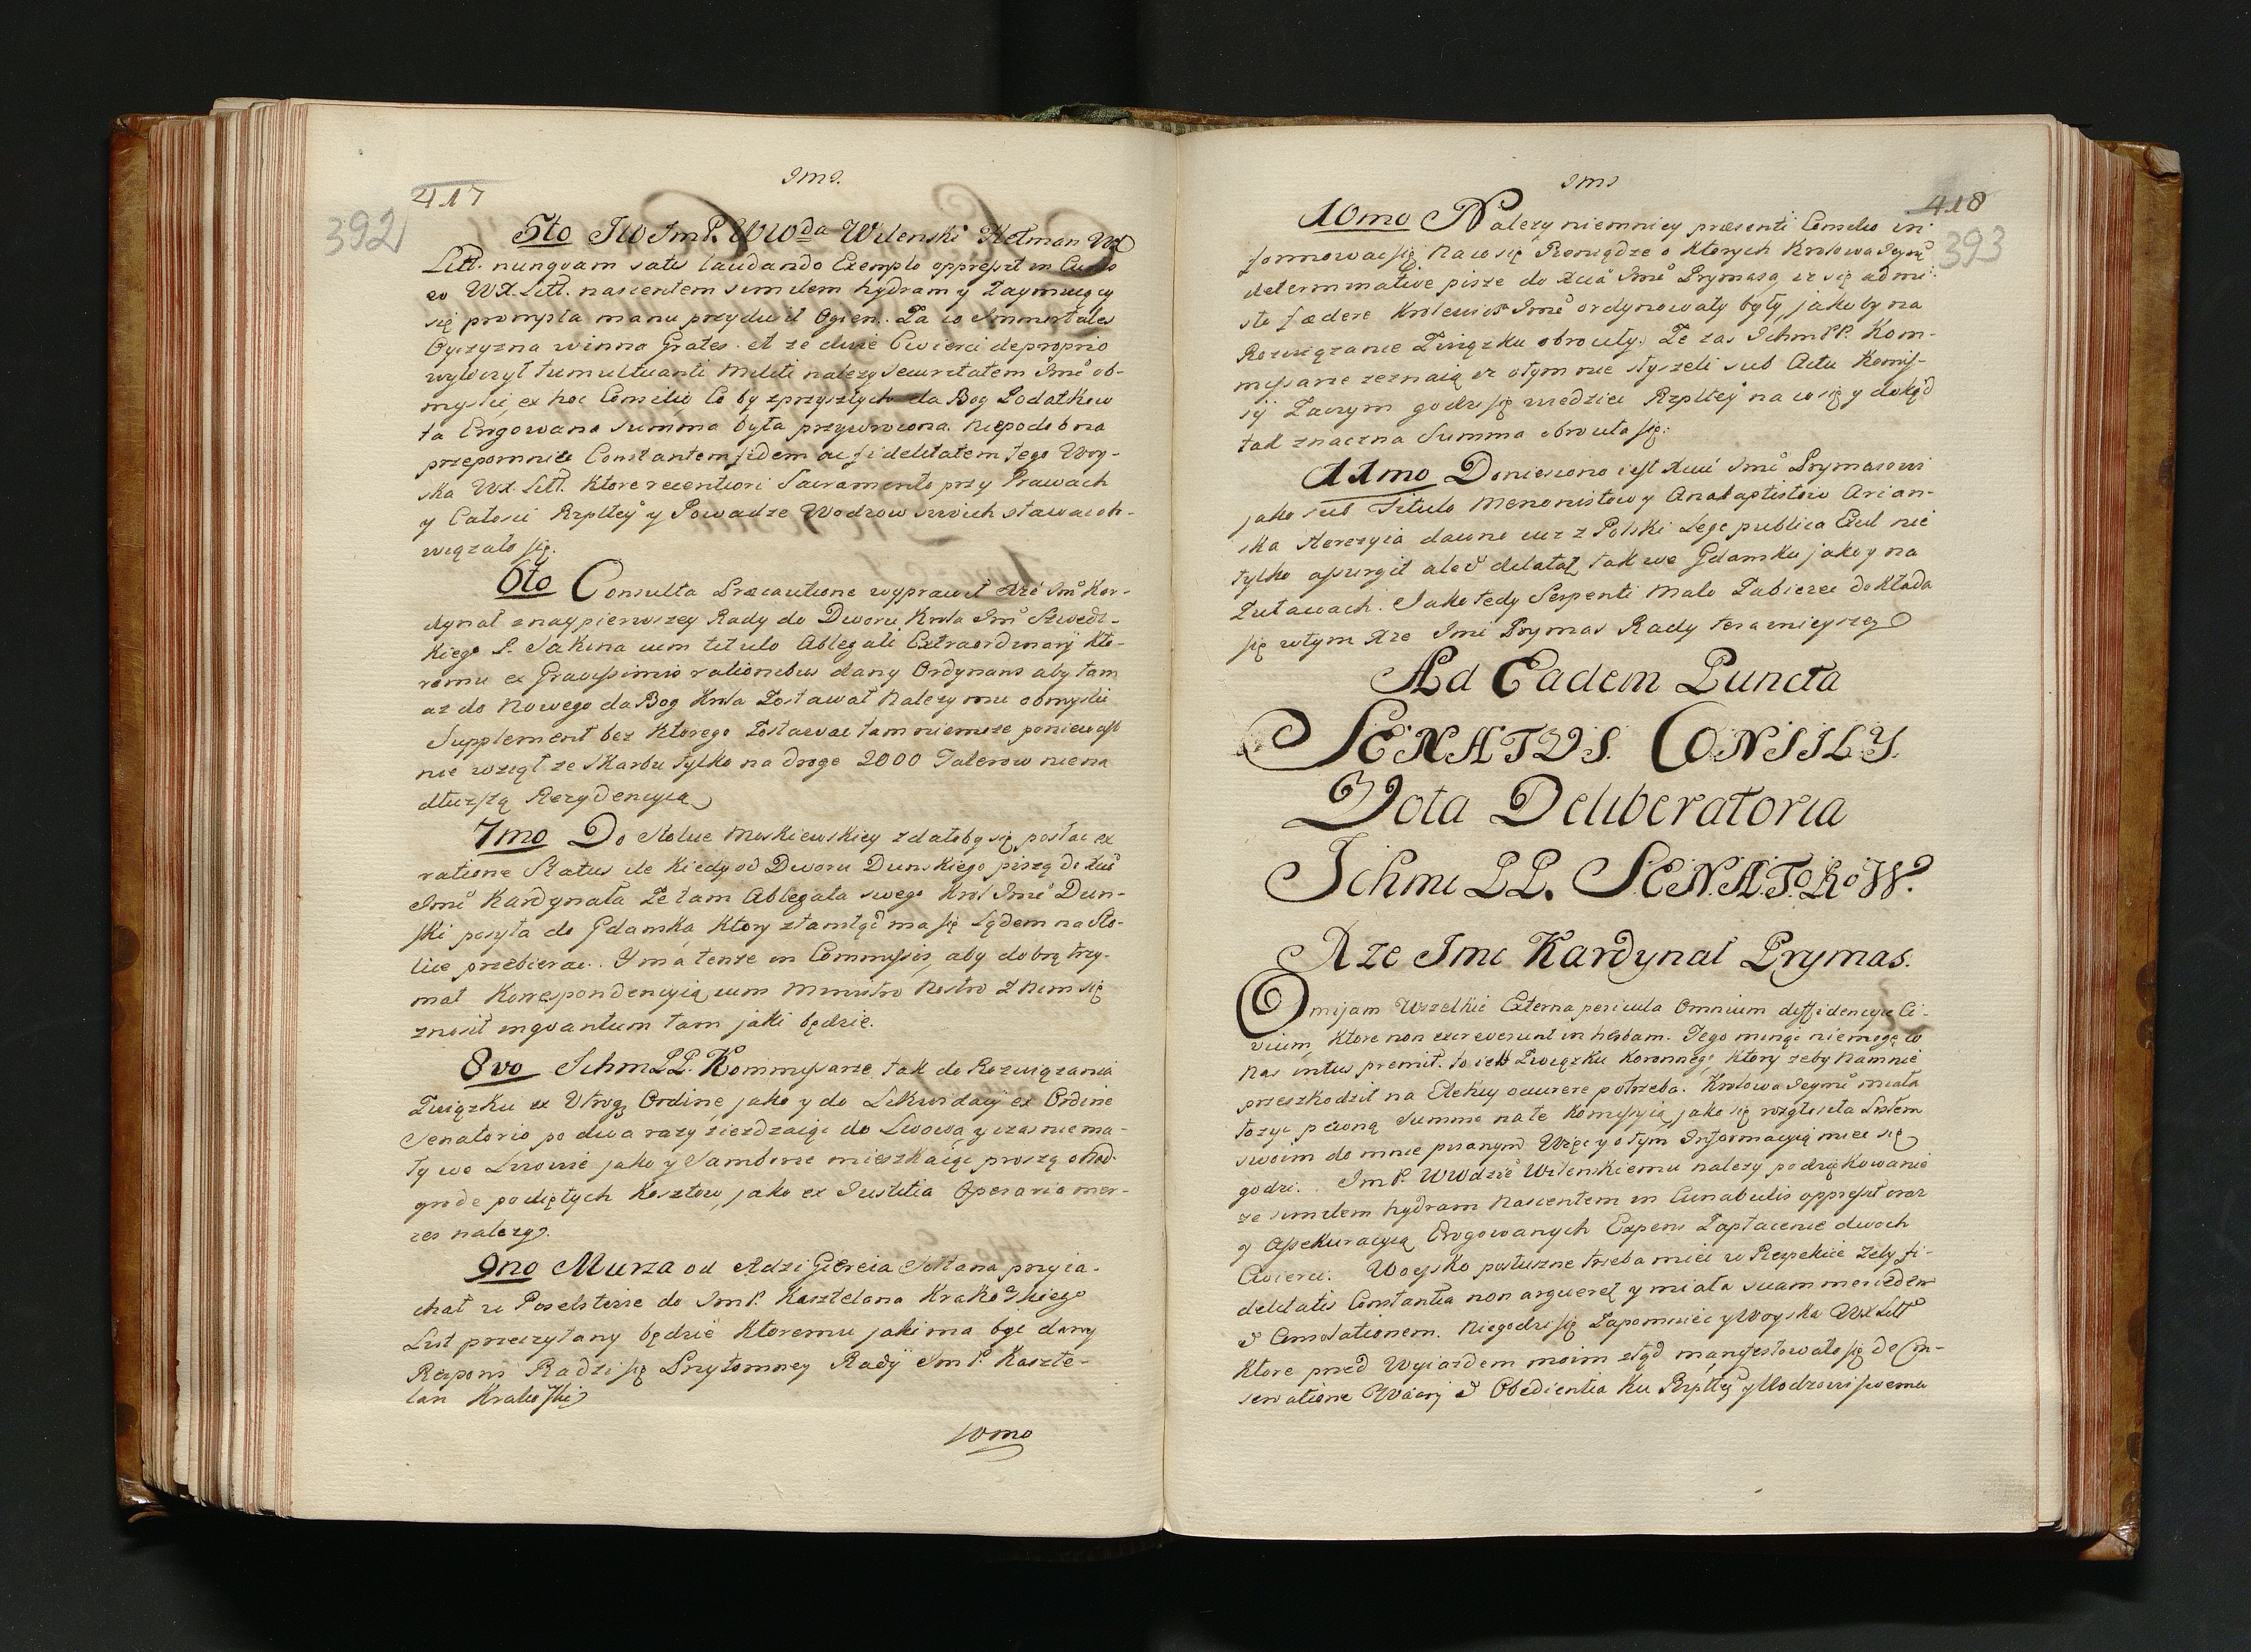 417
392
5to JW JmP. WWda Wilenski Hetman WX
Litt. nunquam satis laudando Exemplo oppressit in Cunis
eo WX. Litt. nascentem similem hydram y Zaymuiący
się prompta manu przydusił Ogien. Za co Immortales
Oyczyzna winna Grates. et ze dwie Cwierci de proprio
wyliczył tumultuanti Militi nalezy securitatem Jmć ob-
myslić, ex hoc Consilio Co by z przyszłych da Bog Podatkow
ta Erogowana summa była przywrocona. Niepodobna
przepomniec Constantem fidem ac fidelitatem tego Woy-
ska WX. Litt. Ktore recentiori Sacramento przy Prawach
y Całosci Rzpltey y Powadze Wodzow swoich stawac ob-
wiązało się.
6to Consulta Præcautione wyprawił Xże Jmć Kar-
dynał z naypierwszey Rady do Dworu Krola Jmć Szwedz-
kiego P. Jakina cum titulo Ablegati Extraordinarij Kto-
remu ex Gravissimis rationibus dany Ordynans aby tam
az do Nowego da Bog Krola Zostawał Nalezy mu obmyslic
Supplement bez Ktorego Zostawac tam niemoze poniewasz
nie wziął ze Skarbu tylko na droge 2000 Talerow nie na
dłuzszą Rezydencyią
7mo Do Stolice Moskiewskiey zdałoby się posłac ex
ratione Status ile Kiedy od Dworu Dunskiego piszą do Xcia
Jmć Kardynała Ze tam Ablegata swego Krol Jmć Dun-
ski posyła do Gdanska, Ktory ztamtąd ma się Lądem na Sto-
lice przebierac. Y ma tenze in Commissis, aby dobrą trzy-
mał Korrespondencyią cum Ministro Nostro Z Nim się
znosił inquantum tam jaki będzie.
8vo Ichm PP. Kommissarze tak do Rozwiązania
Związku ex Utroq Ordine jako y do Likwidacij ex Ordine
Senatorio po dwa razy ziezdzaiąc do Lwowa, y czas nie ma-
ły we Lwowie jako y Samborze mieszkaiąc proszą o Nad-
grode podiętych Kosztow, jako ex Iustitia Operario mer-
ces nalezy.
9no Murza od Adzi Giereia Sołtana przyia-
chał w Poselstwie do JmP. Kasztelana Krakowskiego
List przeczytany będzie Ktoremu jaki ma byc dany
Respons Radzi się Przytomney Rady JmP. Kaszte-
lan Krakowski
10mo
418
393
10mo Nalezy niemniey præsenti Consilio in-
formowac się Na co się Pieniądze o Ktorych Krolowa Jeymć
determinative pisze do Xcia Jmć Prymasa, iz się admi-
sto fædere Krolewicz Jmć ordynowały były, jakoby na
Rozwiązanie Związku obrociły. Ze zas Ichm PP. Kom-
missarze zeznaią iz o tym nie słyszeli sub Actu Komis-
sij Zaczym godzi się wiedziec Rzpltey na co się y dokąd
tak znaczna Summa obrociła się.
11mo Doniesiono iest Xciu Jmć Prymasowi
jako sub Titulo Menonistow y Anabaptistow Arian-
ska Herezyia dawno iuz z Polski Lege publica Exul nie
tylko assurgit ale y dilatat, tak we Gdansku jako y na
Zuławach. Jako tedy Serpenti malo Zabierec dokłada
się w tym Xze Jmć Prymas Rady teraznieyszey
Ad Eadem Puncta
SENATUS CONSILY
Vota Deliberatoria
Ichm PP. SENATOROW.
Xze Jmc Kardynał Prymas.
Omijam Wszelkie Externa pericula Omnium diffidencyie Ci-
vium, Ktore non excreverunt in herbam. Tego minąc niemogę co
Nas intus premit, to iest Związku Koronnego Ktory zeby Nam nie
przeszkodził na Elekcij occurere potrzeba. Krolowa Jeymć miała
łozyc pewną summe na te Komissyią, jako się rozgłosiła Listem
swoim do mnie pisanym Więc y o tym Informacyią miec się
godzi. JmP. WWdzie Wilenskiemu nalezy podziękowanie
ze similem hydram Nascentem in Cunabulis oppressit oraz
y Assekuracyią Erogowanych Expens Zapłacenie dwoch
Cwierci. Woysko posłuszne trzeba miec w Respekcie Zeby fi-
delitatis Constantia non argueret y miała suam mercedem
& Consolationem. Niegodzi się Zapomniec y Woyska WX Litt
Ktore przed Wyiazdem moim ztąd manifestowało się de Con-
servatione & Obedientia Ku Rzpltey y Wodzowi swemu